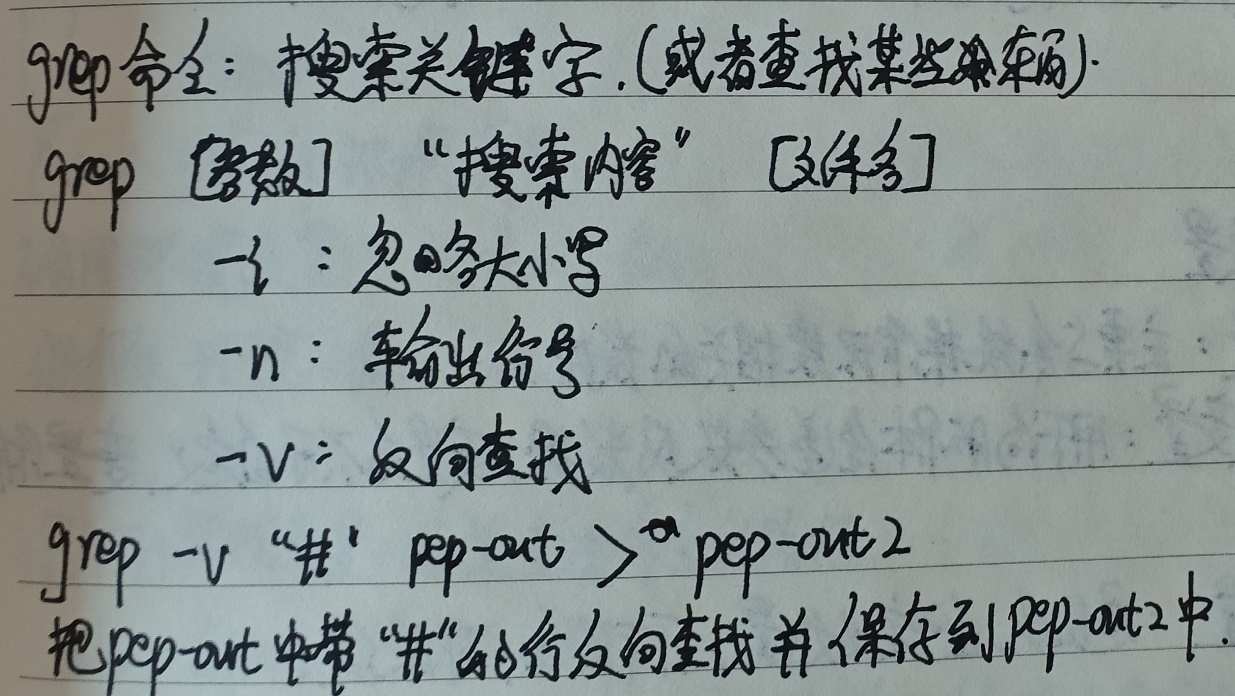 grep命令：搜索关键字.(或者查找某些东西).
grep [参数] “搜索内容” [文件名]
-i：忽略大小写
-n：输出行号
-v：反向查找
grep -v “#' pep-out > pep-out2
把pep-out中带“#”的行反向查找并保存到pep-out2中.